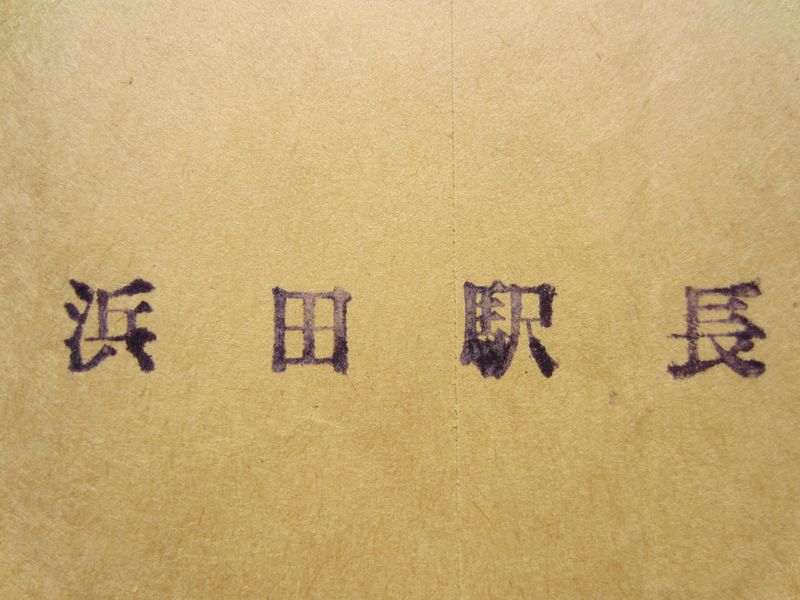 浜田駅長